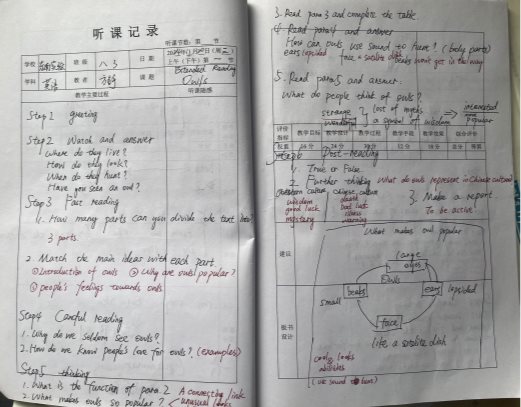 听课记录
听课节数: 第 节
学校
班级 八3
日期
上午(下午)第一节
学科 英语
教者
课题 Extended Reading
Owls
教学主要过程
听课随感
Step1 greeting
Step2 Watch and answer
Where do they live?
How do they look?
When do they hunt?
Have you seen an owl?
Step3 Fast reading
1. How many parts can you divide the text into?
3 parts.
2. Match the main ideas with each part.
①Introduction of owls ② Why are owls popular?
③ people's feelings towards owls
Step4 Careful reading
1. Why do we seldom see owls?
2. How do we know people's love for owls? (examples)
Step5 thinking
1. What is the function of para.2 A connecting link
2. What makes owls so popular? unusual looks
3. Read para 3 and complete the table.
4. Read para 4 and answer
How can owls use sound to hunt? (body parts)
ears lopsided face a satellite dish beaks won't get in the way
5. Read para 5 and answer.
What do people think of owls?
strange lost of myths interested
a symbol of wisdom popular
评价指标 教学目标 教学设计 教学过程 教学手段 教学效果 综合评价
权重 总分 等第
Step6 Post-reading
1. True or False
2. Further thinking What do owls represent in Chinese culture?
Western culture Chinese culture
wisdom death
good luck bad luck
mystery illness
warning
3. Make a report.
To be active
建议
What makes owl popular
large
eyes
Owls
beaks
small
ears
lopsided
face
like a satellite dish
板书设计
cool looks
abilities
(use sound to hunt)